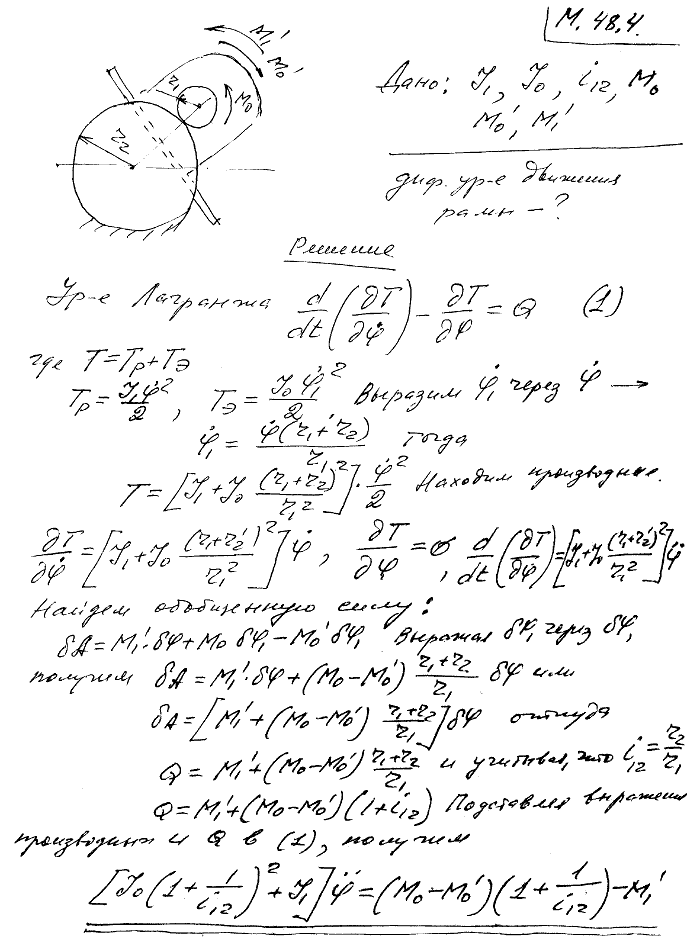 М. 48.4.
M₁′ M₀′
M₀
r₁
r₂
Дано: J₁, J₀, i₁₂, M₀
M₀′, M₁′
диф. ур-е движения
рамы – ?
Решение
Ур-е Лагранжа d/dt (∂T/∂φ̇) − ∂T/∂φ = Q (1)
где T = Tр + Tэ
Tр = J₁φ̇²/2, Tэ = J₀φ̇₁²/2 Выразим φ̇₁ через φ̇ →
φ̇₁ = φ̇(r₁ + r₂)/r₁ тогда
T = [J₁ + J₀ (r₁ + r₂)²/r₁²] · φ̇²/2 Находим производные.
∂T/∂φ̇ = [J₁ + J₀ (r₁ + r₂)²/r₁²] φ̇, ∂T/∂φ = 0, d/dt (∂T/∂φ̇) = [J₁ + J₀ (r₁ + r₂)²/r₁²] φ̈
Найдем обобщенную силу:
δA = M₁′·δφ + M₀ δφ₁ − M₀′ δφ₁ Выражая δφ₁ через δφ,
получим δA = M₁′·δφ + (M₀ − M₀′) (r₁ + r₂)/r₁ δφ или
δA = [M₁′ + (M₀ − M₀′) (r₁ + r₂)/r₁] δφ откуда
Q = M₁′ + (M₀ − M₀′) (r₁ + r₂)/r₁ и учитывая, что i₁₂ = r₂/r₁
Q = M₁′ + (M₀ − M₀′)(1 + i₁₂) Подставляя выражения
производных и Q в (1), получим
[J₀(1 + 1/i₁₂)² + J₁] φ̈ = (M₀ − M₀′)(1 + 1/i₁₂) − M₁′